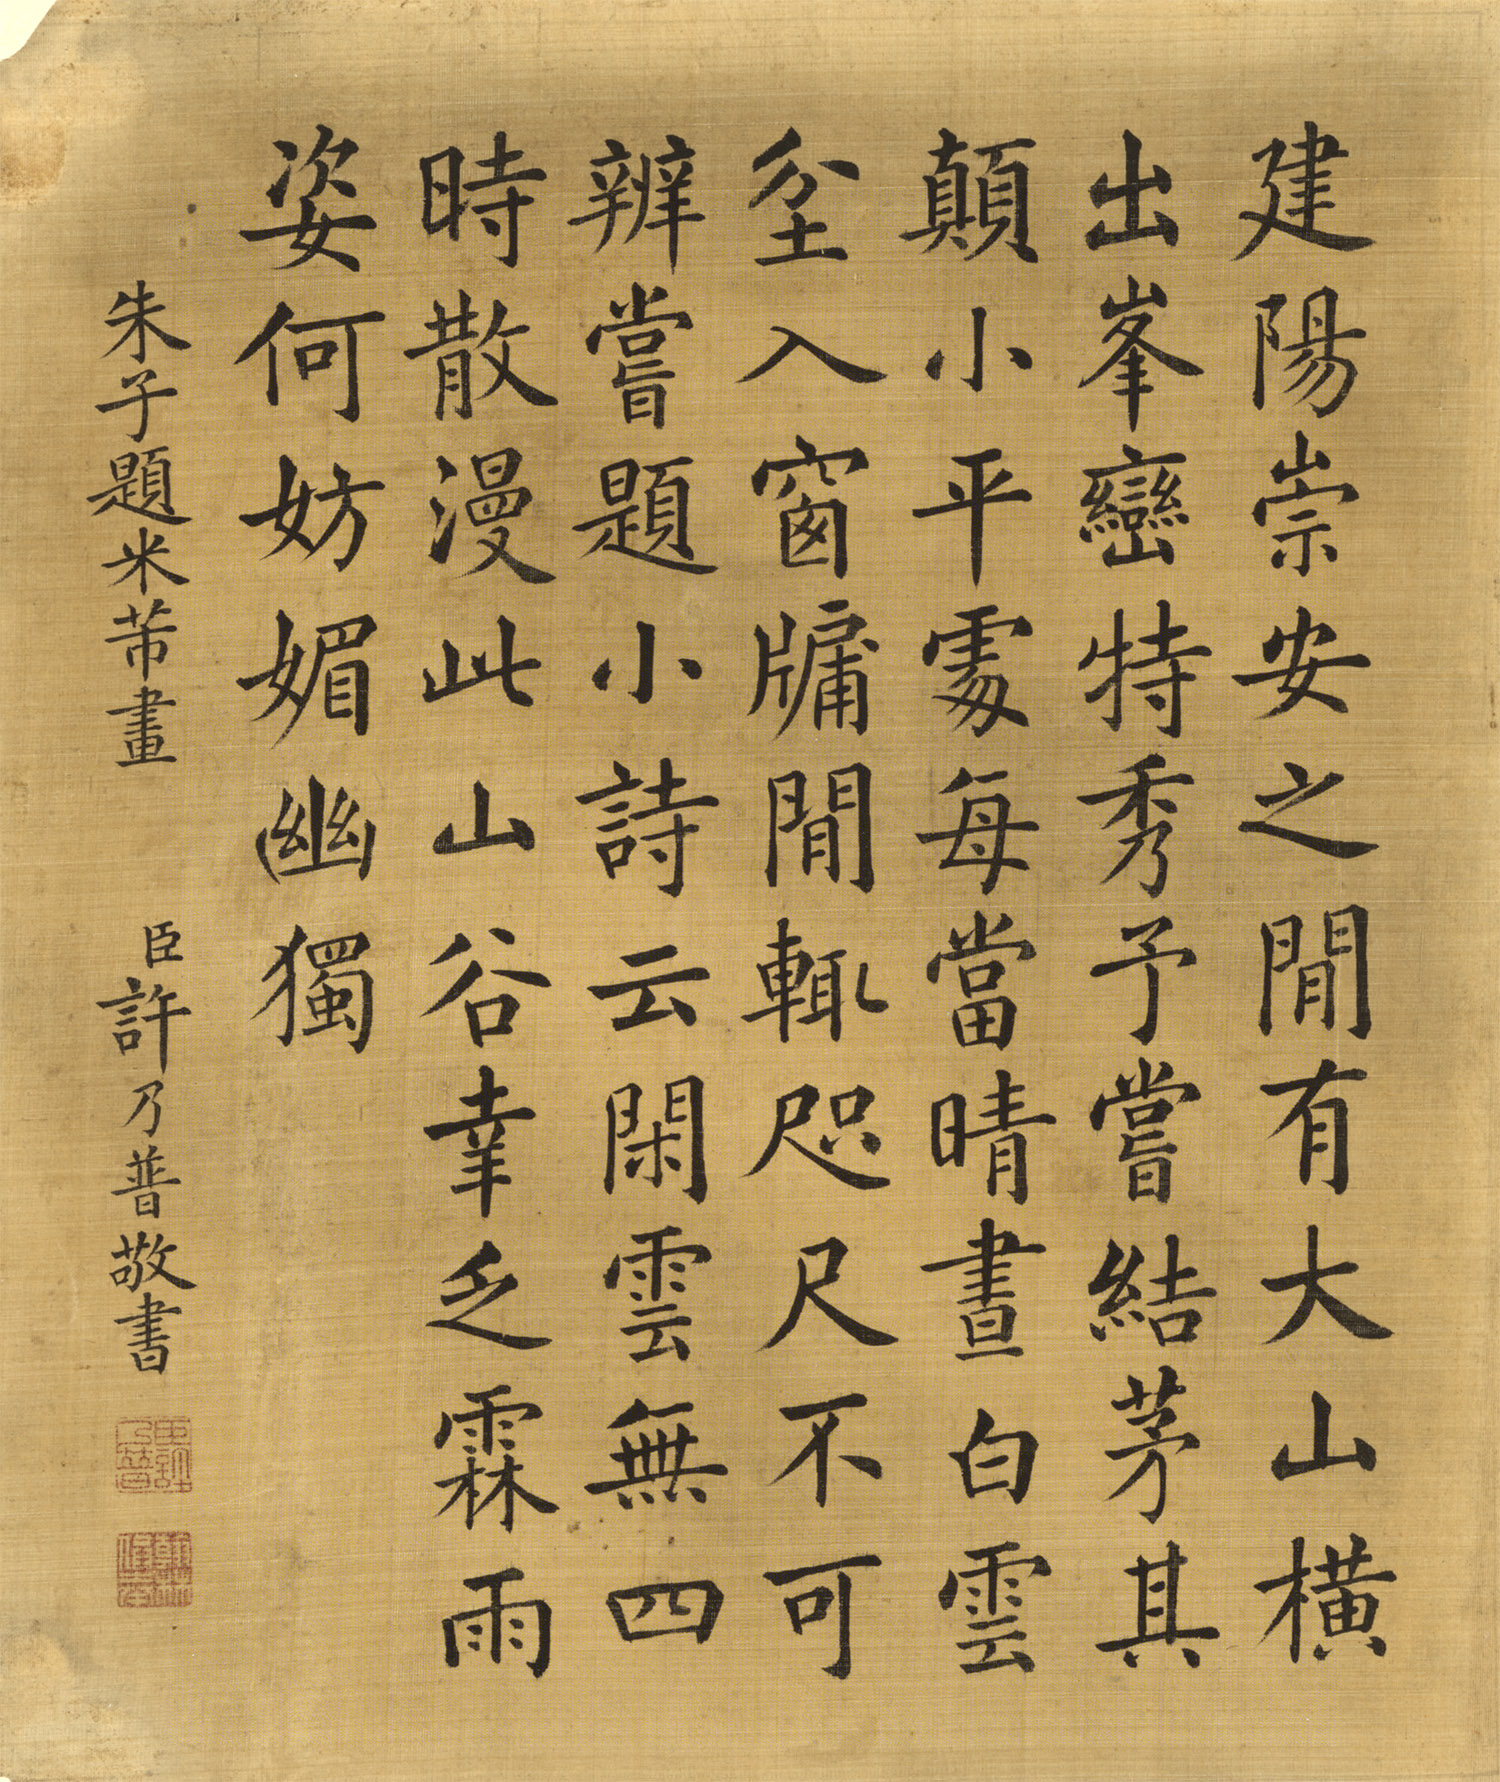 建陽崇安之閒有大山橫
出峯巒特秀予嘗結茅其
顛小平處每當晴晝白雲
坌入窗牖閒輒咫尺不可
辨嘗題小詩云閑雲無四
時散漫此山谷幸乏霖雨
姿何妨媚幽獨
朱子題米芾畫
臣許乃普敬書